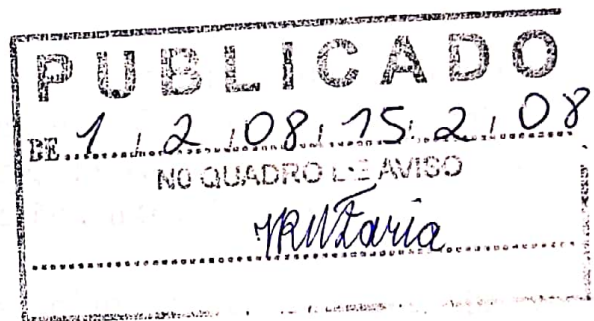 PUBLICADO
DE 1, 2, 08, 15, 2, 08
NO QUADRO DE AVISO